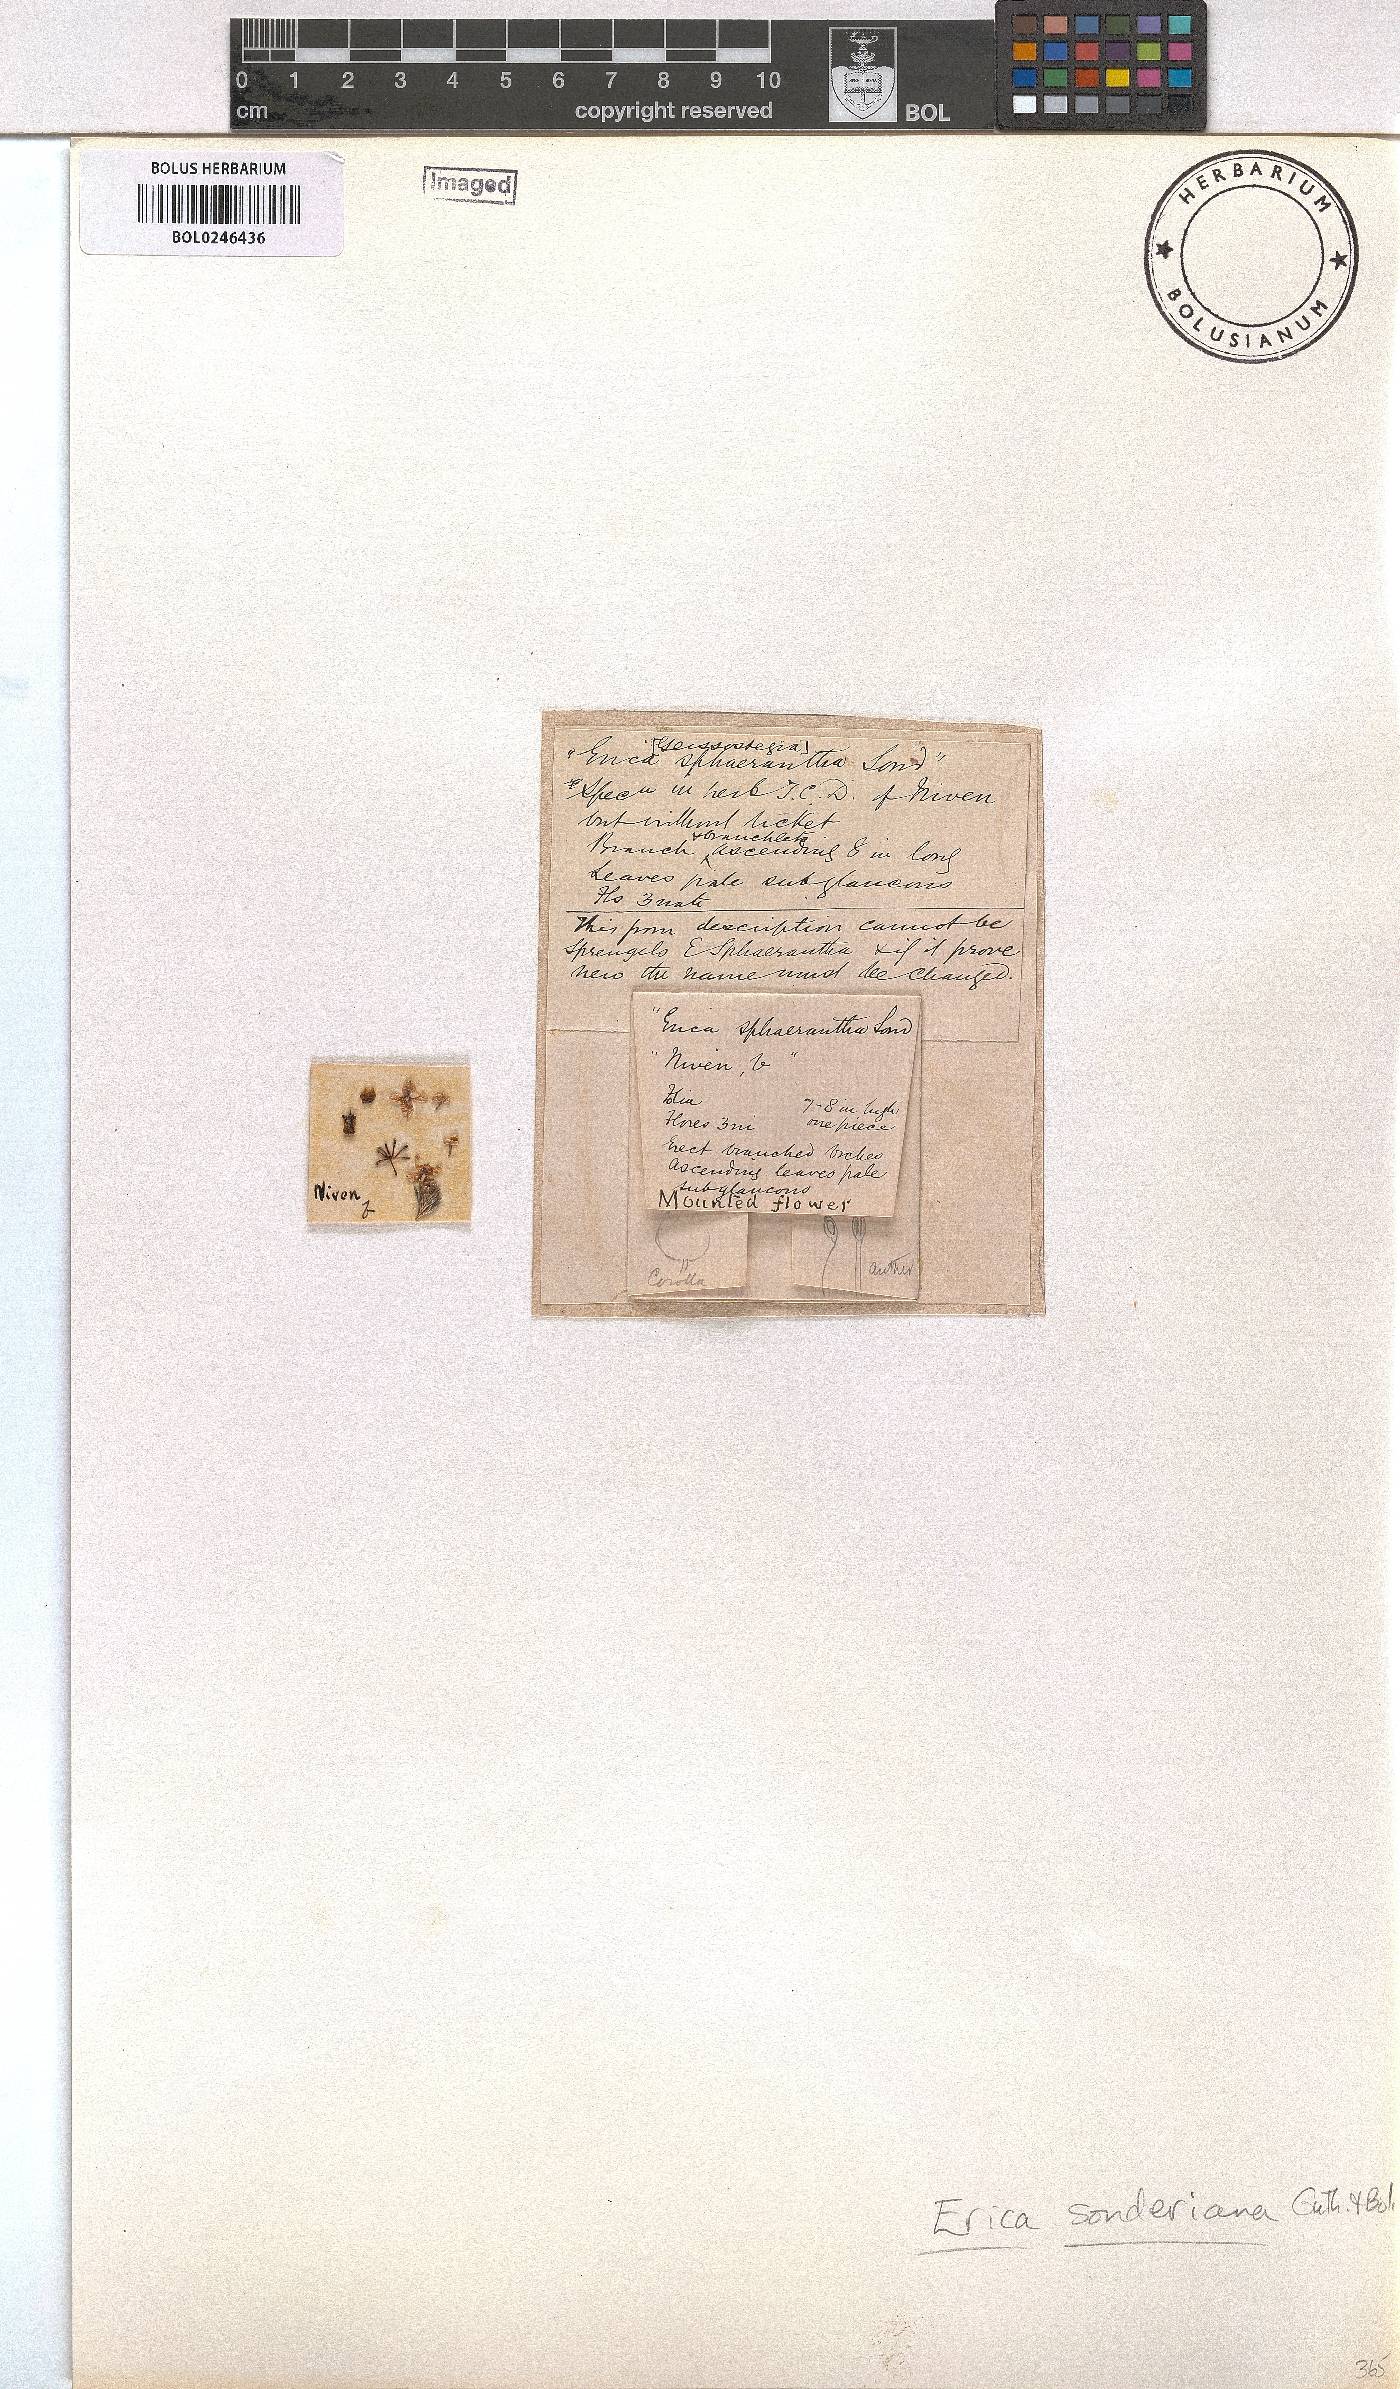 0 1 2 3 4 5 6 7 8 9 10
cm copyright reserved BOL
BOLUS HERBARIUM
BOL0246436
Imaged
HERBARIUM
BOLUSIANUM
[Geissostegia]
"Erica sphaerantha Sond"
Specn in herb T.C.D. of Niven
but without ticket
+ branchlets
Branch ‸ ascending 8 in long
Leaves pale subglaucous
Fls 3nate
This from description cannot be
Sprengels E Sphaerantha & if it prove
new the name must be changed.
"Erica sphaerantha Sond
"Niven, b"
Folia 7-8 in high
Flores 3ni one piece
Erect branched brches
ascending leaves pale
subglaucous
Mounted flower
Corolla
anther
Niven
b
Erica sonderiana Guth. & Bol.
365